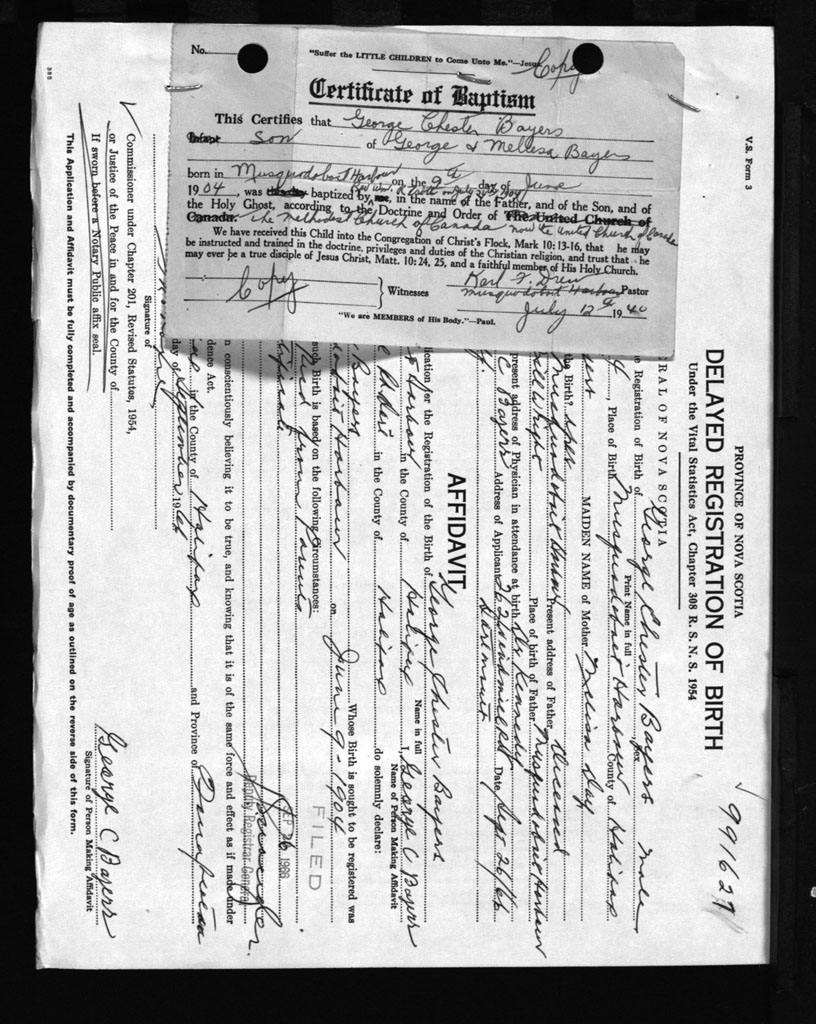 No.
"Suffer the LITTLE CHILDREN to Come Unto Me."—Jesus
Copy
Certificate of Baptism
This Certifies that George Chester Bayers
Infant Son of George & Mellesa Bayers
born in Musquodoboit Harbour on the 9th day of June
1904, was this day baptized by me, in the name of the Father, and of the Son, and of
the Holy Ghost, according to the Doctrine and Order of The United Church of
Canada. The Methodist Church of Canada now the United Church of Canada
We have received this Child into the Congregation of Christ's Flock, Mark 10: 13-16, that he may
be instructed and trained in the doctrine, privileges and duties of the Christian religion, and trust that he
may ever be a true disciple of Jesus Christ, Matt. 10: 24, 25, and a faithful member of His Holy Church.
Copy
Witnesses
Karl F. Drew Pastor
Musquodoboit Harbour
July 12th 1940
"We are MEMBERS of His Body."—Paul.
V.S. Form 3
991627
PROVINCE OF NOVA SCOTIA
DELAYED REGISTRATION OF BIRTH
Under the Vital Statistics Act, Chapter 308 R. S. N. S. 1954
RAL OF NOVA SCOTIA
e Registration of Birth of George Chester Bayers male
Print Name in full
Sex
4, Place of Birth Musquodoboit Harbour County of Halifax
MAIDEN NAME of Mother Melissa Day
the Birth? Yes Present address of Father Deceased
Musquodoboit Harbour Place of birth of Father Musquodoboit Harbour
ll Wright
present address of Physician in attendance at birth Dr Kennedy
C Bayers Address of Applicant
Dartmouth Date Sept 26/66
AFFIDAVIT
lication for the Registration of the Birth of George Chester Bayers
Name in full
t Harbour in the County of Halifax I, George C Bayers
Name of Person Making Affidavit
in the County of Halifax do solemnly declare:
Bayers Whose Birth is sought to be registered was
Harbour on June 9-1904
such Birth is based on the following circumstances:
from Parents
FILED
SEP 26 1966
Deputy Registrar General
n conscientiously believing it to be true, and knowing that it is of the same force and effect as if made under
dence Act.
in the County of Halifax and Province of
day of September 1966
Signature of
Commissioner under Chapter 201, Revised Statutes, 1954,
or Justice of the Peace in and for the County of
If sworn before a Notary Public affix seal.
George C Bayers
Signature of Person Making Affidavit
This Application and Affidavit must be fully completed and accompanied by documentary proof of age as outlined on the reverse side of this form.
385